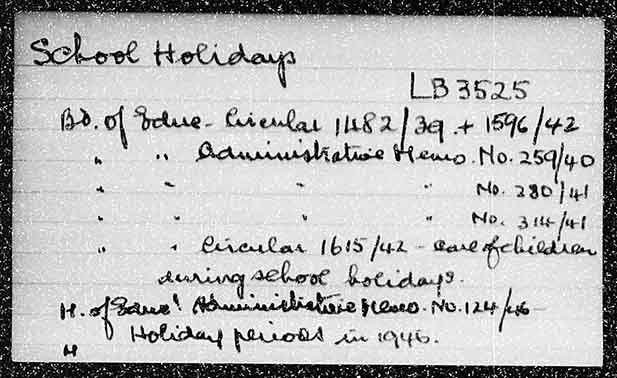 School Holidays
LB3525
Bd. of Educ. Circular 1482/39 + 1596/42
" " Administrative Memo. No. 259/40
" " " " No. 280/41
" " " " No. 314/41
" " Circular 1615/42 - care of children
during school holidays.
M. of Educ. Administrative Memo. No. 124/46 -
Holiday periods in 1946.
"